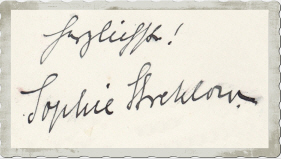 Herzlichst!
Sophie Strehlow.